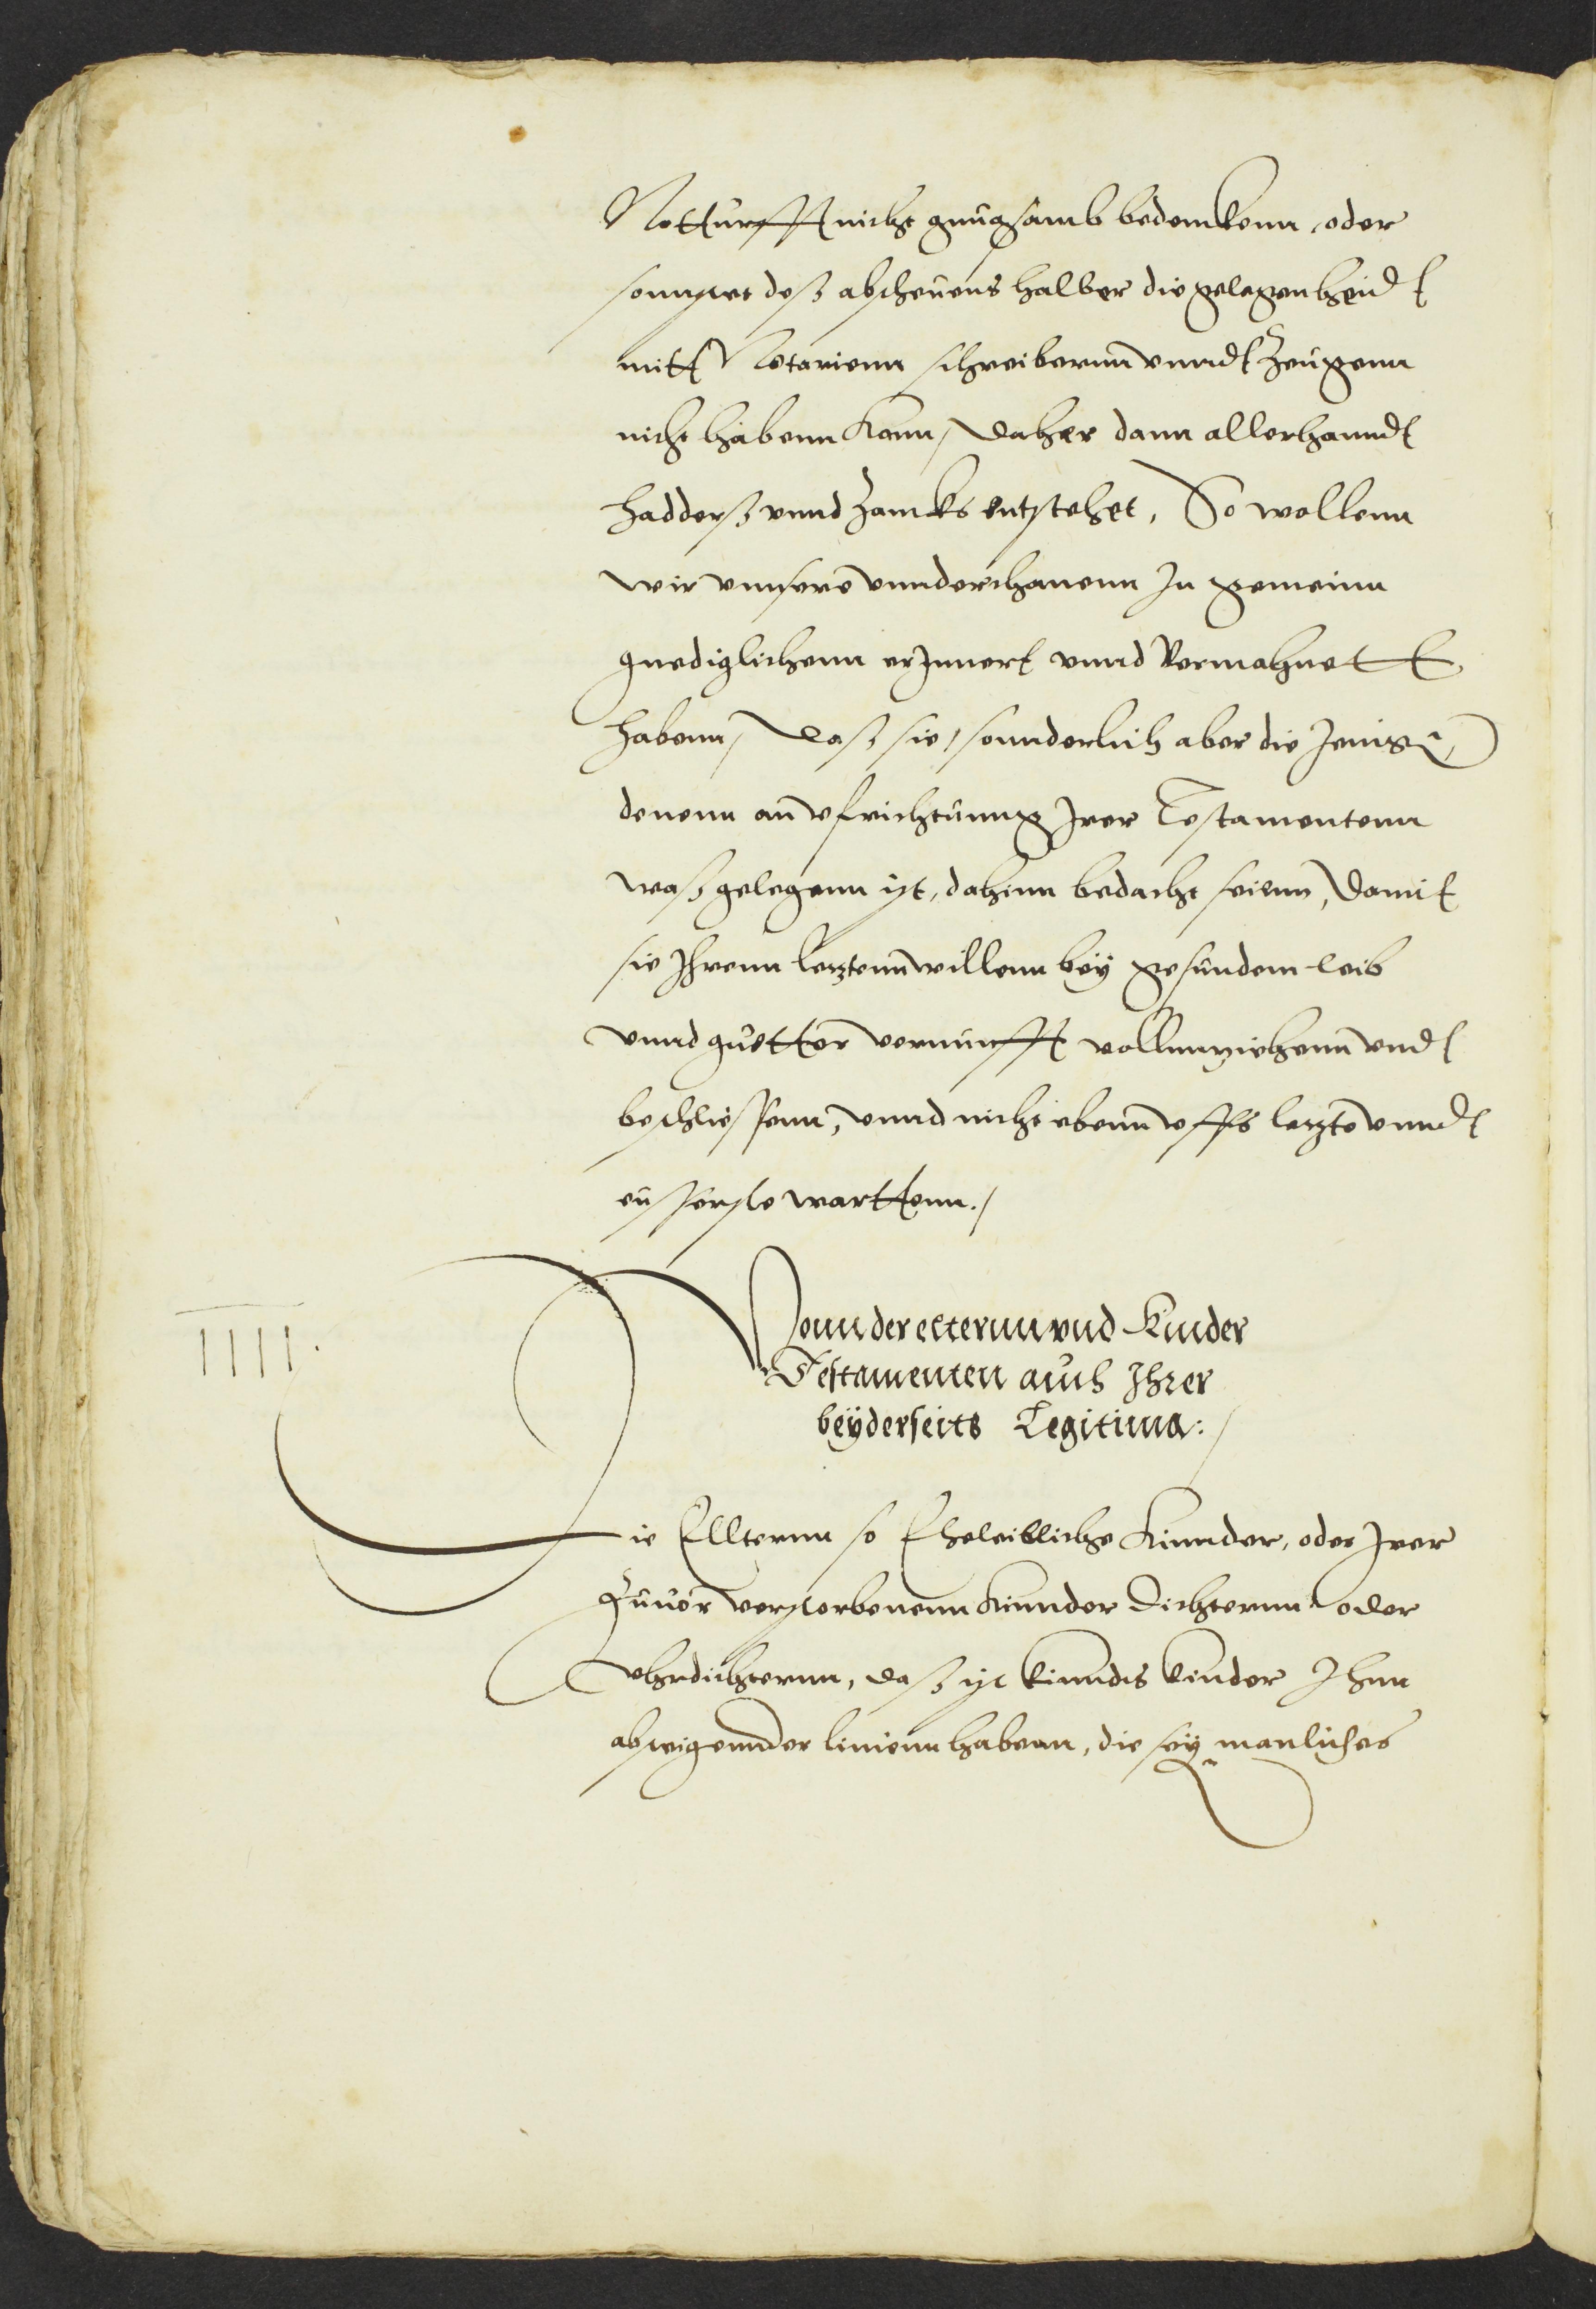 Notturfft nicht gnugsamb bedennckenn, oder
sonnstet deß abscheuens halber die gelegenheidt
mitt Notarienn schreibernn vnndt Zeugenn
nicht habenn kann, daher dann allerhanndt
hadderß vnnd Zanncks entstehet, So wollenn
wir vnnsere vnnderthanenn Jn gemeinn
gnediglichenn erJnnert vnnd Vermahnett
habenn, daß sie, sonnderlich aber die Jenige,
denenn an vfrichtunng Jrer Testamentenn
waß gelegenn ist, dahinn bedacht seienn, damit
sie Jhrenn letztenn willenn bey gesundem leib
vnnd guetter vernunfft vollnnziehenn vndt
beschliessenn, vnnd nicht ebenn vffs letzte vnndt
eusserste warttenn./
IIII.
Vonn der elternn vnd Kinder
Testamenten auch Ihrer
beyderseits Legitima:/
Die Elltternn so Eheleibliche Kinnder, oder Jrer
Zuuor verstorbenenn Kinnder Dichternn oder
Vhrdichternn, daß ist kinndts kinder Jhnn
absteigennder linienn habenn, die sey manliches